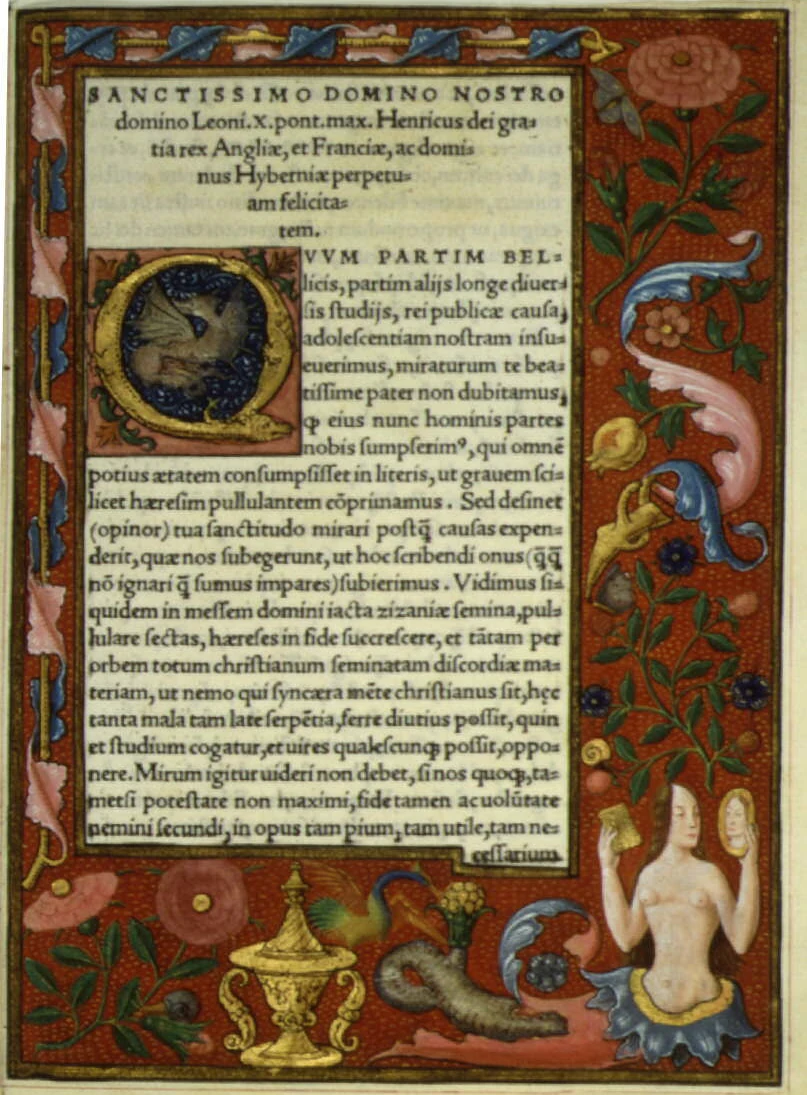 SANCTISSIMO DOMINO NOSTRO
domino Leoni.X.pont.max. Henricus dei gra=
tia rex Angliæ, et Franciæ, ac domi=
nus Hyberniæ perpetu=
am felicita=
tem.
QVVM PARTIM BEL=
licis, partim alijs longe diuer=
sis ſtudijs, rei publicæ cauſa,
adoleſcentiam noſtram inſu=
euerimus, miraturum te bea=
tiſſime pater non dubitamus,
ꝙ eius nunc hominis partes
nobis ſumpſerimꝰ, qui omnē
potius ætatem conſumpſiſſet in literis, ut grauem ſci=
licet hæreſim pullulantem cōprimamus. Sed deſinet
(opinor) tua ſanctitudo mirari poſtq̄ cauſas expen=
derit, quæ nos ſubegerunt, ut hoc ſcribendi onus (q̄q̄
nō ignari q̄ ſumus impares) ſubierimus. Vidimus ſi=
quidem in meſſem domini iacta zizaniæ ſemina, pul=
lulare ſectas, hæreſes in fide ſuccreſcere, et tātam per
orbem totum chriſtianum ſeminatam diſcordiæ ma=
teriam, ut nemo qui ſyncæra mēte chriſtianus ſit, hęc
tanta mala tam late ſerpētia, ferre diutius poſſit, quin
et ſtudium cogatur, et uires qualeſcunqꝫ poſſit, oppo=
nere. Mirum igitur uideri non debet, ſi nos quoqꝫ, ta=
metſi poteſtate non maximi, fide tamen ac uolūtate
nemini ſecundi, in opus tam pium, tam utile, tam ne=
ceſſarium